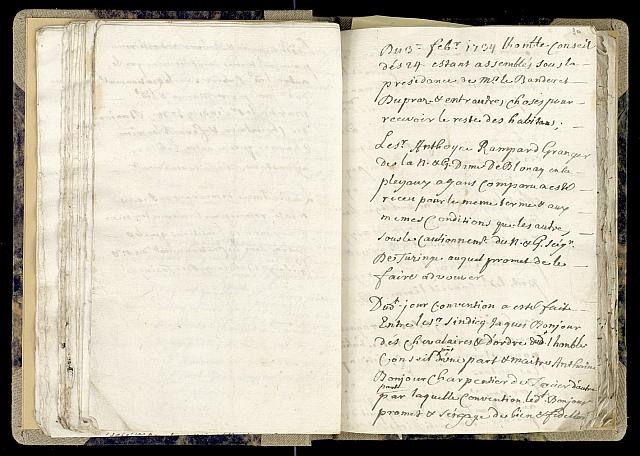 Du 3e febr. 1734 lhon.ble Conseil
des 24. estant assemblés sous la
presidance de Mr. le Banderet
Dupraz & entr'autres choses pour
recevoir le reste des habitans;
Le Sr. Anthoyne Rampard Granger
de la N. & G. Dime De Blonay en la
pleyaux ayans Comparu a esté
receu pour le meme terme & aux
memes Conditions que les autre,
sous le Cautionnemt. du N. & G. Seigr.
De Turinge auquel promet de le
faire advouer.
Dudt. jour Convention a esté faite
Entre le Sr. Sindicq Jaques Bonjour
des Chevalaires & d'ordre dudt. lhonble
Conseil d'une part & maitre Anthoine
Bonjour Charpentier de d'autre
part
par laquelle Convention ledt. Bonjour
promet & s'engage de bien & fidelle